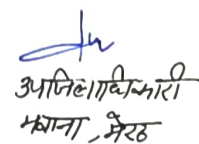 उपजिलाधिकारी
मवाना, मेरठ